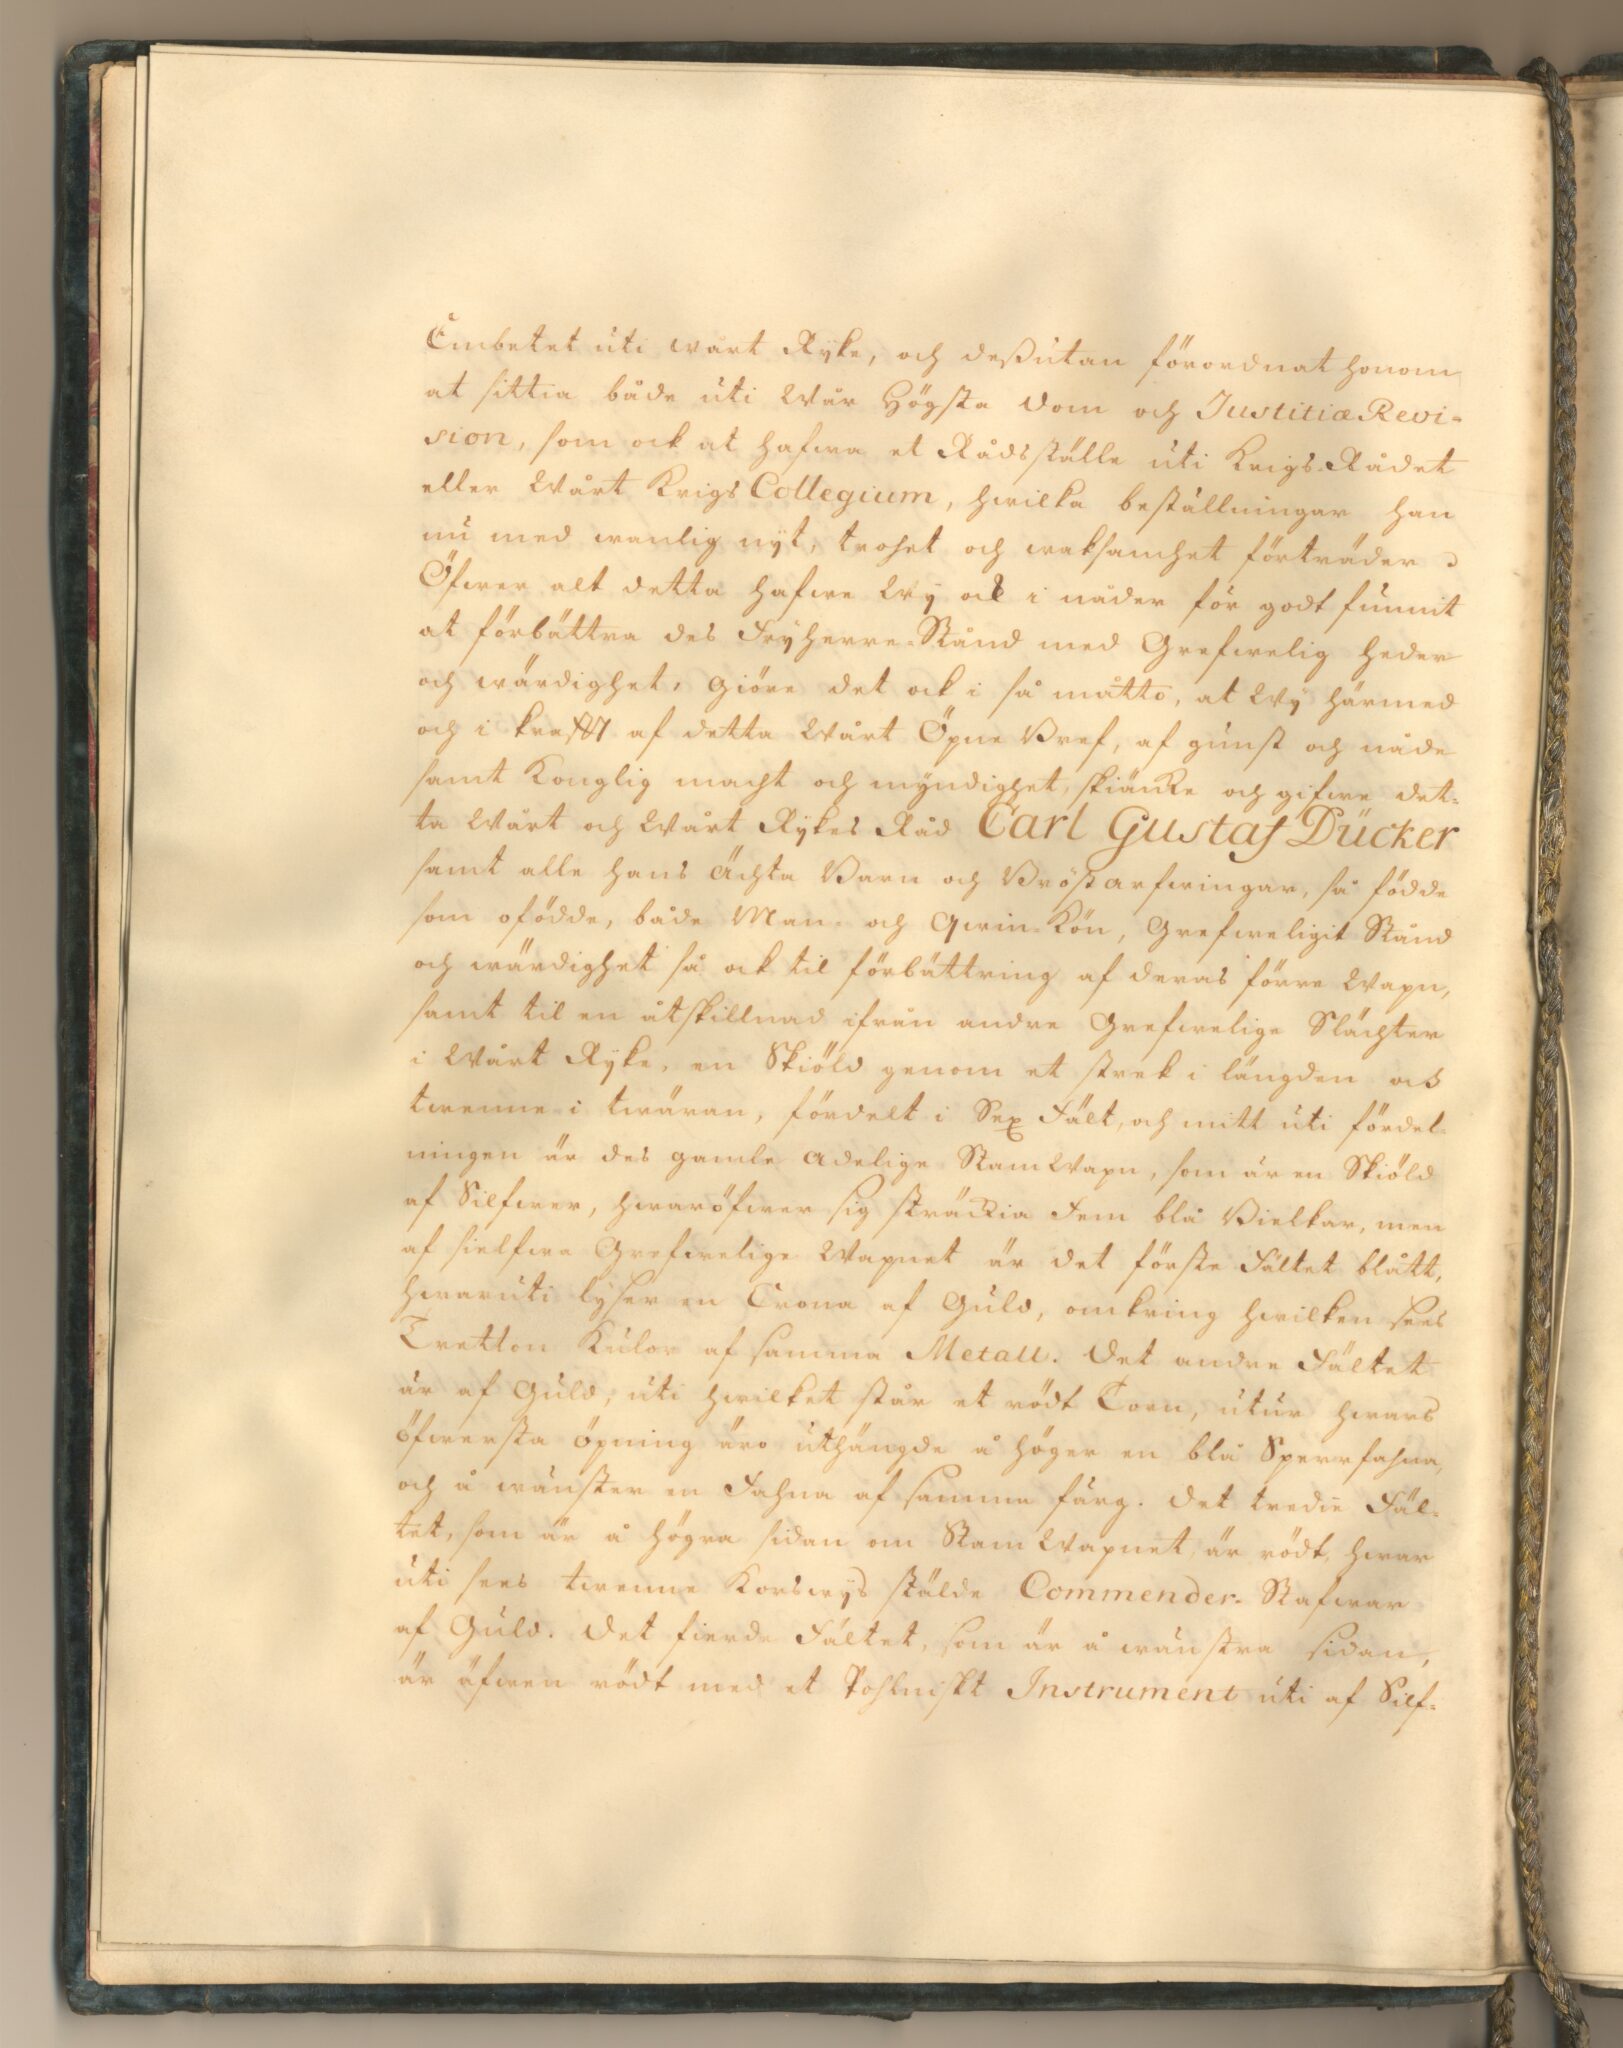 Embetet uti wårt Ryke, och deßutan förordnat honom
at sittia både uti Wår Högsta Dom och Justitiæ Revi-
sion, som ock at hafwa et Rådsställe uti Krigs-Rådet
eller Wårt Krigs Collegium, hwilka beställningar han
nu med wanlig nyt, trohet och waksamhet förträder.
Öfwer alt detta hafwe Wy ock i nåder för godt funnit
at förbättra des Fryherre-Stånd med Grefwelig heder
och wärdighet, Giöre det ock i så måtto, at Wy härmed
och i krafft af detta Wårt Öpne Bref, af gunst och nåde
samt Konglig macht och myndighet, skiäncke och gifwe det-
ta Wårt och Wårt Rykes Råd Carl Gustaf Dücker
samt alle hans Ächta Barn och Bröstarfwingar, så födde
som ofödde, både Man- och Qwin-Kön, Grefweligit Stånd
och wärdighet så ock til förbättring af deras förre Wapn,
samt til en åtskillnad ifrån andre Grefwelige Slächter
i Wårt Ryke, en Skiöld genom et strek i längden och
twenne i twären, fördelt i Sex Fält, och mitt uti fördel-
ningen är des gamle Adelige StamWapn, som är en Skiöld
af Silfwer, hwaröfwer sig sträckia Fem blå Bielkar, men
af sielfwa Grefwelige Wapnet är det förste Fältet blått,
hwaruti lyser en Crona af Guld, omkring hwilken sees
Tretton Kulor af samma Metall. Det andre Fältet
är af Guld, uti hwilket står et rödt Torn, utur hwars
öfwersta öpning äro uthängde å höger en blå Sperrfahna,
och å wänster en Fahna af samma färg. Det tredie Fäl-
tet, som är å högra sidan om Stam Wapnet, är rödt, hwar
uti sees twenne Korswys stälde Commender-Stafwar
af Guld. Det fierde Fältet, som är å wänstra sidan,
är äfwen rödt med et Pohlniskt Instrument uti af Silf-